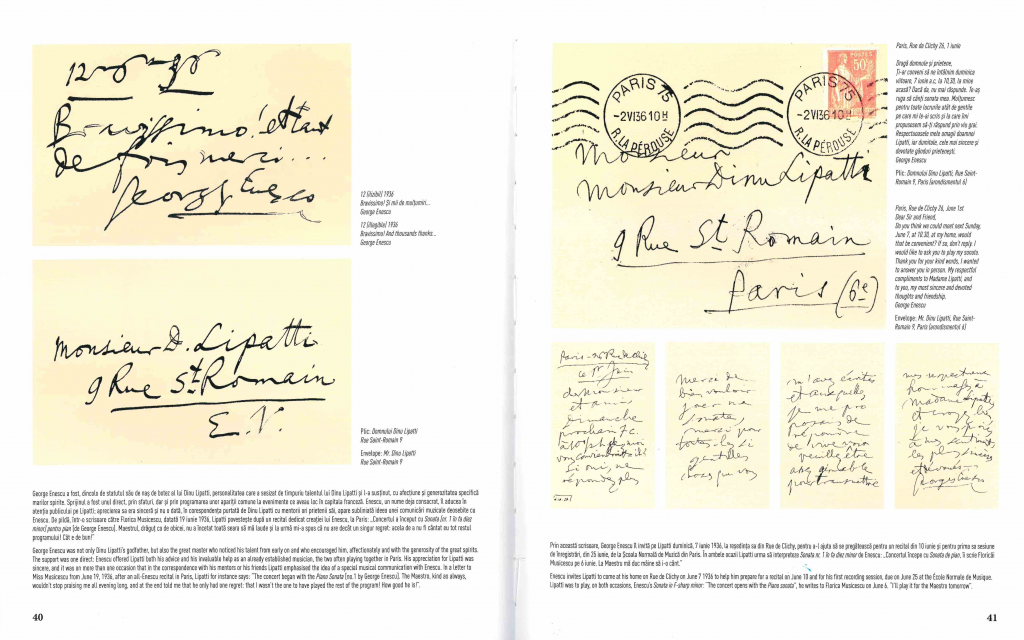 Bravissimo! et tant
de fois merci...
Georges Enesco
12 [ilizibil] 1936
Bravissimo! Și mii de mulțumiri...
George Enescu
12 [illegible] 1936
Bravissimo! And thousands thanks...
George Enescu
Monsieur D. Lipatti
9 Rue St Romain
E.V.
Plic: Domnului Dinu Lipatti
Rue Saint-Romain 9
Envelope: Mr. Dinu Lipatti
Rue Saint-Romain 9
George Enescu a fost, dincolo de statutul său de naș de botez al lui Dinu Lipatti, personalitatea care a sesizat de timpuriu talentul lui Dinu Lipatti și l-a susținut, cu afecțiune și generozitatea specifică
marilor spirite. Sprijinul a fost unul direct, prin sfaturi, dar și prin programarea unor apariții comune la evenimente ce aveau loc în capitala franceză. Enescu, un nume deja consacrat, îl aducea în
atenția publicului pe Lipatti; aprecierea sa era sinceră și nu o dată, în corespondența purtată de Dinu Lipatti cu mentorii an prietenii săi, apare subliniată ideea unei comunicări muzicale deosebite cu
Enescu. De pildă, într-o scrisoare către Florica Musicescu, datată 19 iunie 1936, Lipatti povestește după un recital dedicat creației lui Enescu, la Paris: „Concertul a început cu Sonata [nr. 1 în fa diez
minor] pentru pian [de George Enescu]. Maestrul, drăguț ca de obicei, nu a încetat toată seara să mă laude și la urmă mi-a spus că nu are decât un singur regret: acela de a nu fi cântat eu tot restul
programului! Cât e de bun!"
George Enescu was not only Dinu Lipatti's godfather, but also the great master who noticed his talent from early on and who encouraged him, affectionately and with the generosity of the great spirits.
The support was one direct: Enescu offered Lipatti both his advice and his invaluable help as an already established musician, the two often playing together in Paris. His appreciation for Lipatti was
sincere, and it was on more than one occasion that in the correspondence with his mentors or his friends Lipatti emphasised the idea of a special musical communication with Enescu. In a letter to
Miss Musicescu from June 19, 1936, after an all-Enescu recital in Paris, Lipatti for instance says: "The concert began with the Piano Sonata [no.1 by George Enescu]. The Maestro, kind as always,
wouldn't stop praising me all evening long, and at the end told me that he only had one regret: that I wasn't the one to have played the rest of the program! How good he is!".
40
PARIS 75
-2VI36 10H
R. LA PÉROUSE
POSTES
50c
PARIS 75
-2VI36 10H
R. LA PÉROUSE
Monsieur
Monsieur Dinu Lipatti
9 Rue St Romain
Paris (6e)
Paris, Rue de Clichy 26, 1 iunie
Dragă domnule și prietene,
Ți-ar conveni să ne întâlnim duminica
viitoare, 7 iunie a.c, la 10.30, la mine
acasă? Dacă da, nu mai răspunde. Te-aș
ruga să cânți sonata mea. Mulțumesc
pentru toate lucrurile atât de gentile
pe care mi le-ai scris și la care îmi
propusesem să-ți răspund prin viu grai.
Respectuoasele mele omagii doamnei
Lipatti, iar dumitale, cele mai sincere și
devotate gânduri prietenești.
George Enescu
Plic: Domnului Dinu Lipatti, Rue Saint-
Romain 9, Paris (arondismentul 6)
Paris, Rue de Clichy 26, June 1st
Dear Sir and Friend,
Do you think we could meet next Sunday,
June 7, at 10.30, at my home, would
that be convenient? If so, don't reply. I
would like to ask you to play my sonata.
Thank you for your kind words, I wanted
to answer you in person. My respectful
compliments to Madame Lipatti, and
to you, my most sincere and devoted
thoughts and friendship.
George Enescu
Envelope: Mr. Dinu Lipatti, Rue Saint-
Romain 9, Paris (arondismentul 6)
et ami
dimanche
prochain 7 c.
Si oui, ne
répondez plus
Merci de
bien vouloir
jouer ma
sonate,
merci pour
toutes les si
gentilles
choses que vous
m'avez écrites
de vive voix
Madame Lipatti
les plus sincères
Prin această scrisoare, George Enescu îl invită pe Lipatti duminică, 7 iunie 1936, la reședința sa din Rue de Clichy, pentru a-l ajuta să se pregătească pentru un recital din 10 iunie și pentru prima sa sesiune
de înregistrări, din 25 iunie, de la Școala Normală de Muzică din Paris. În ambele ocazii Lipatti urma să interpreteze Sonata nr. 1 în fa diez minor de Enescu: „Concertul începe cu Sonata de pian, îi scrie Floricăi
Musicescu pe 6 iunie. La Maestru mă duc mâine să i-o cânt."
Enescu invites Lipatti to come at his home on Rue de Clichy on June 7 1936 to help him prepare for a recital on June 10 and for his first recording session, due on June 25 at the École Normale de Musique.
Lipatti was to play, on both occasions, Enescu's Sonata in F-sharp minor: "The concert opens with the Piano sonata", he writes to Florica Musicescu on June 6. "I'll play it for the Maestro tomorrow".
41